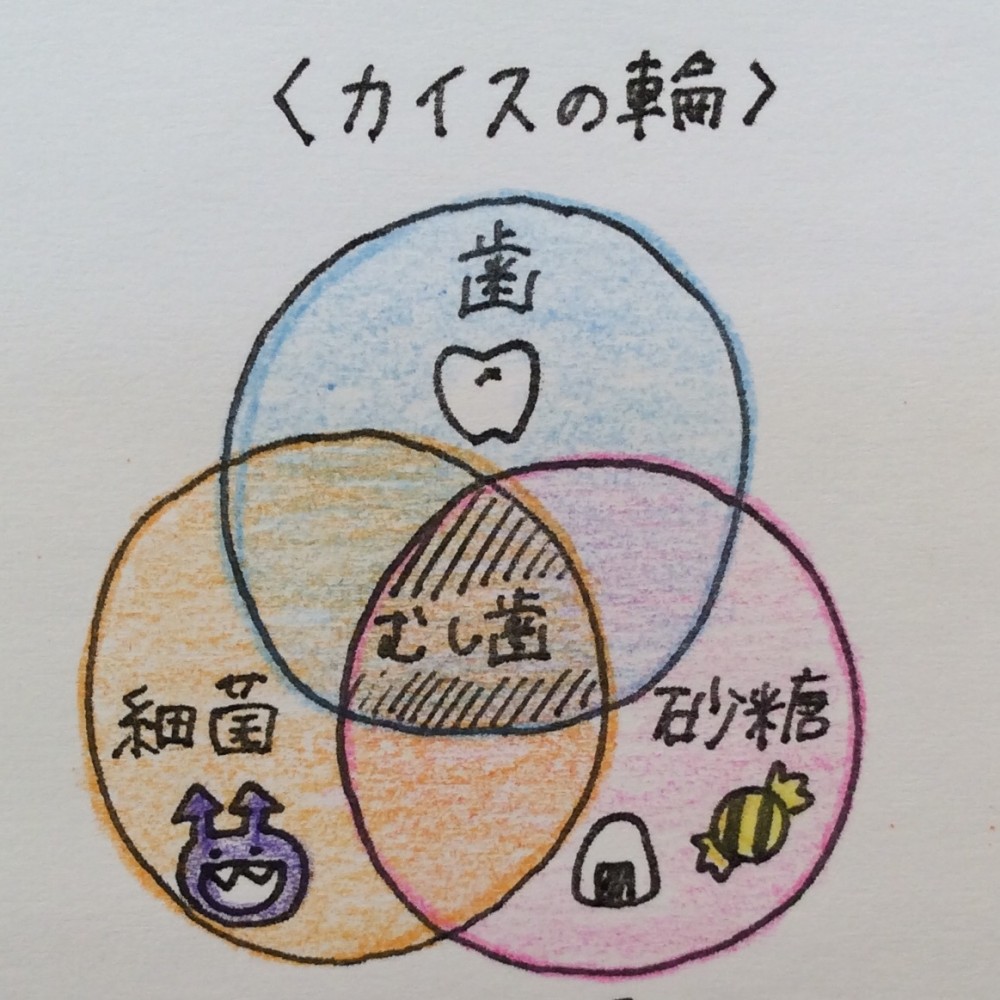 〈カイスの輪〉
歯
むし歯
細菌
砂糖